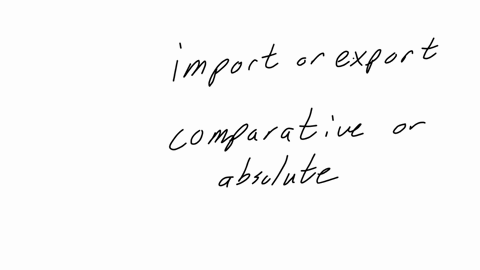 import or export
comparative or
absolute